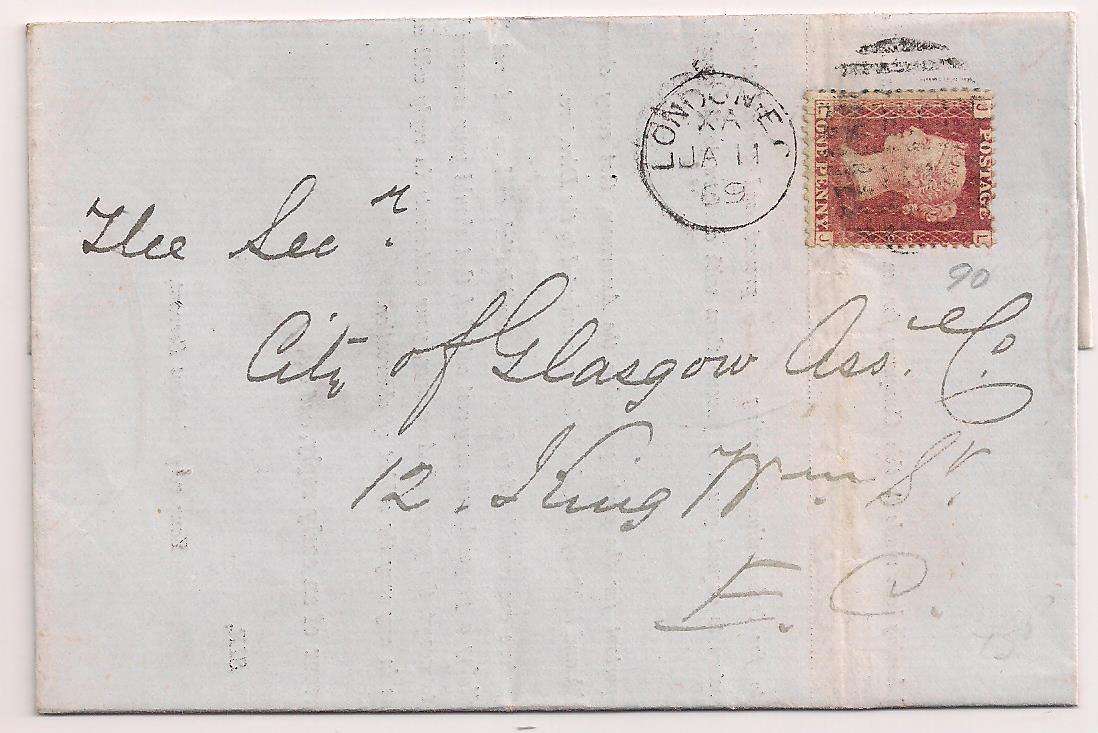 LONDON·E·C
XA
JA 11
69
POSTAGE
ONE PENNY
J L
L J
90
The Secʳ
City of Glasgow Assᶜᵉ Co.
12. King Wᵐ Sᵗ.
E. C.